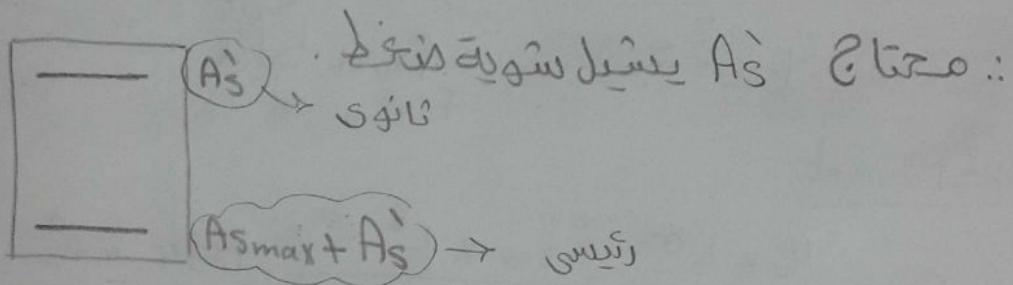 ∴ محتاج As` يشيل شوية ضغط.
As` → ثانوى
Asmax + As` → رئيسى